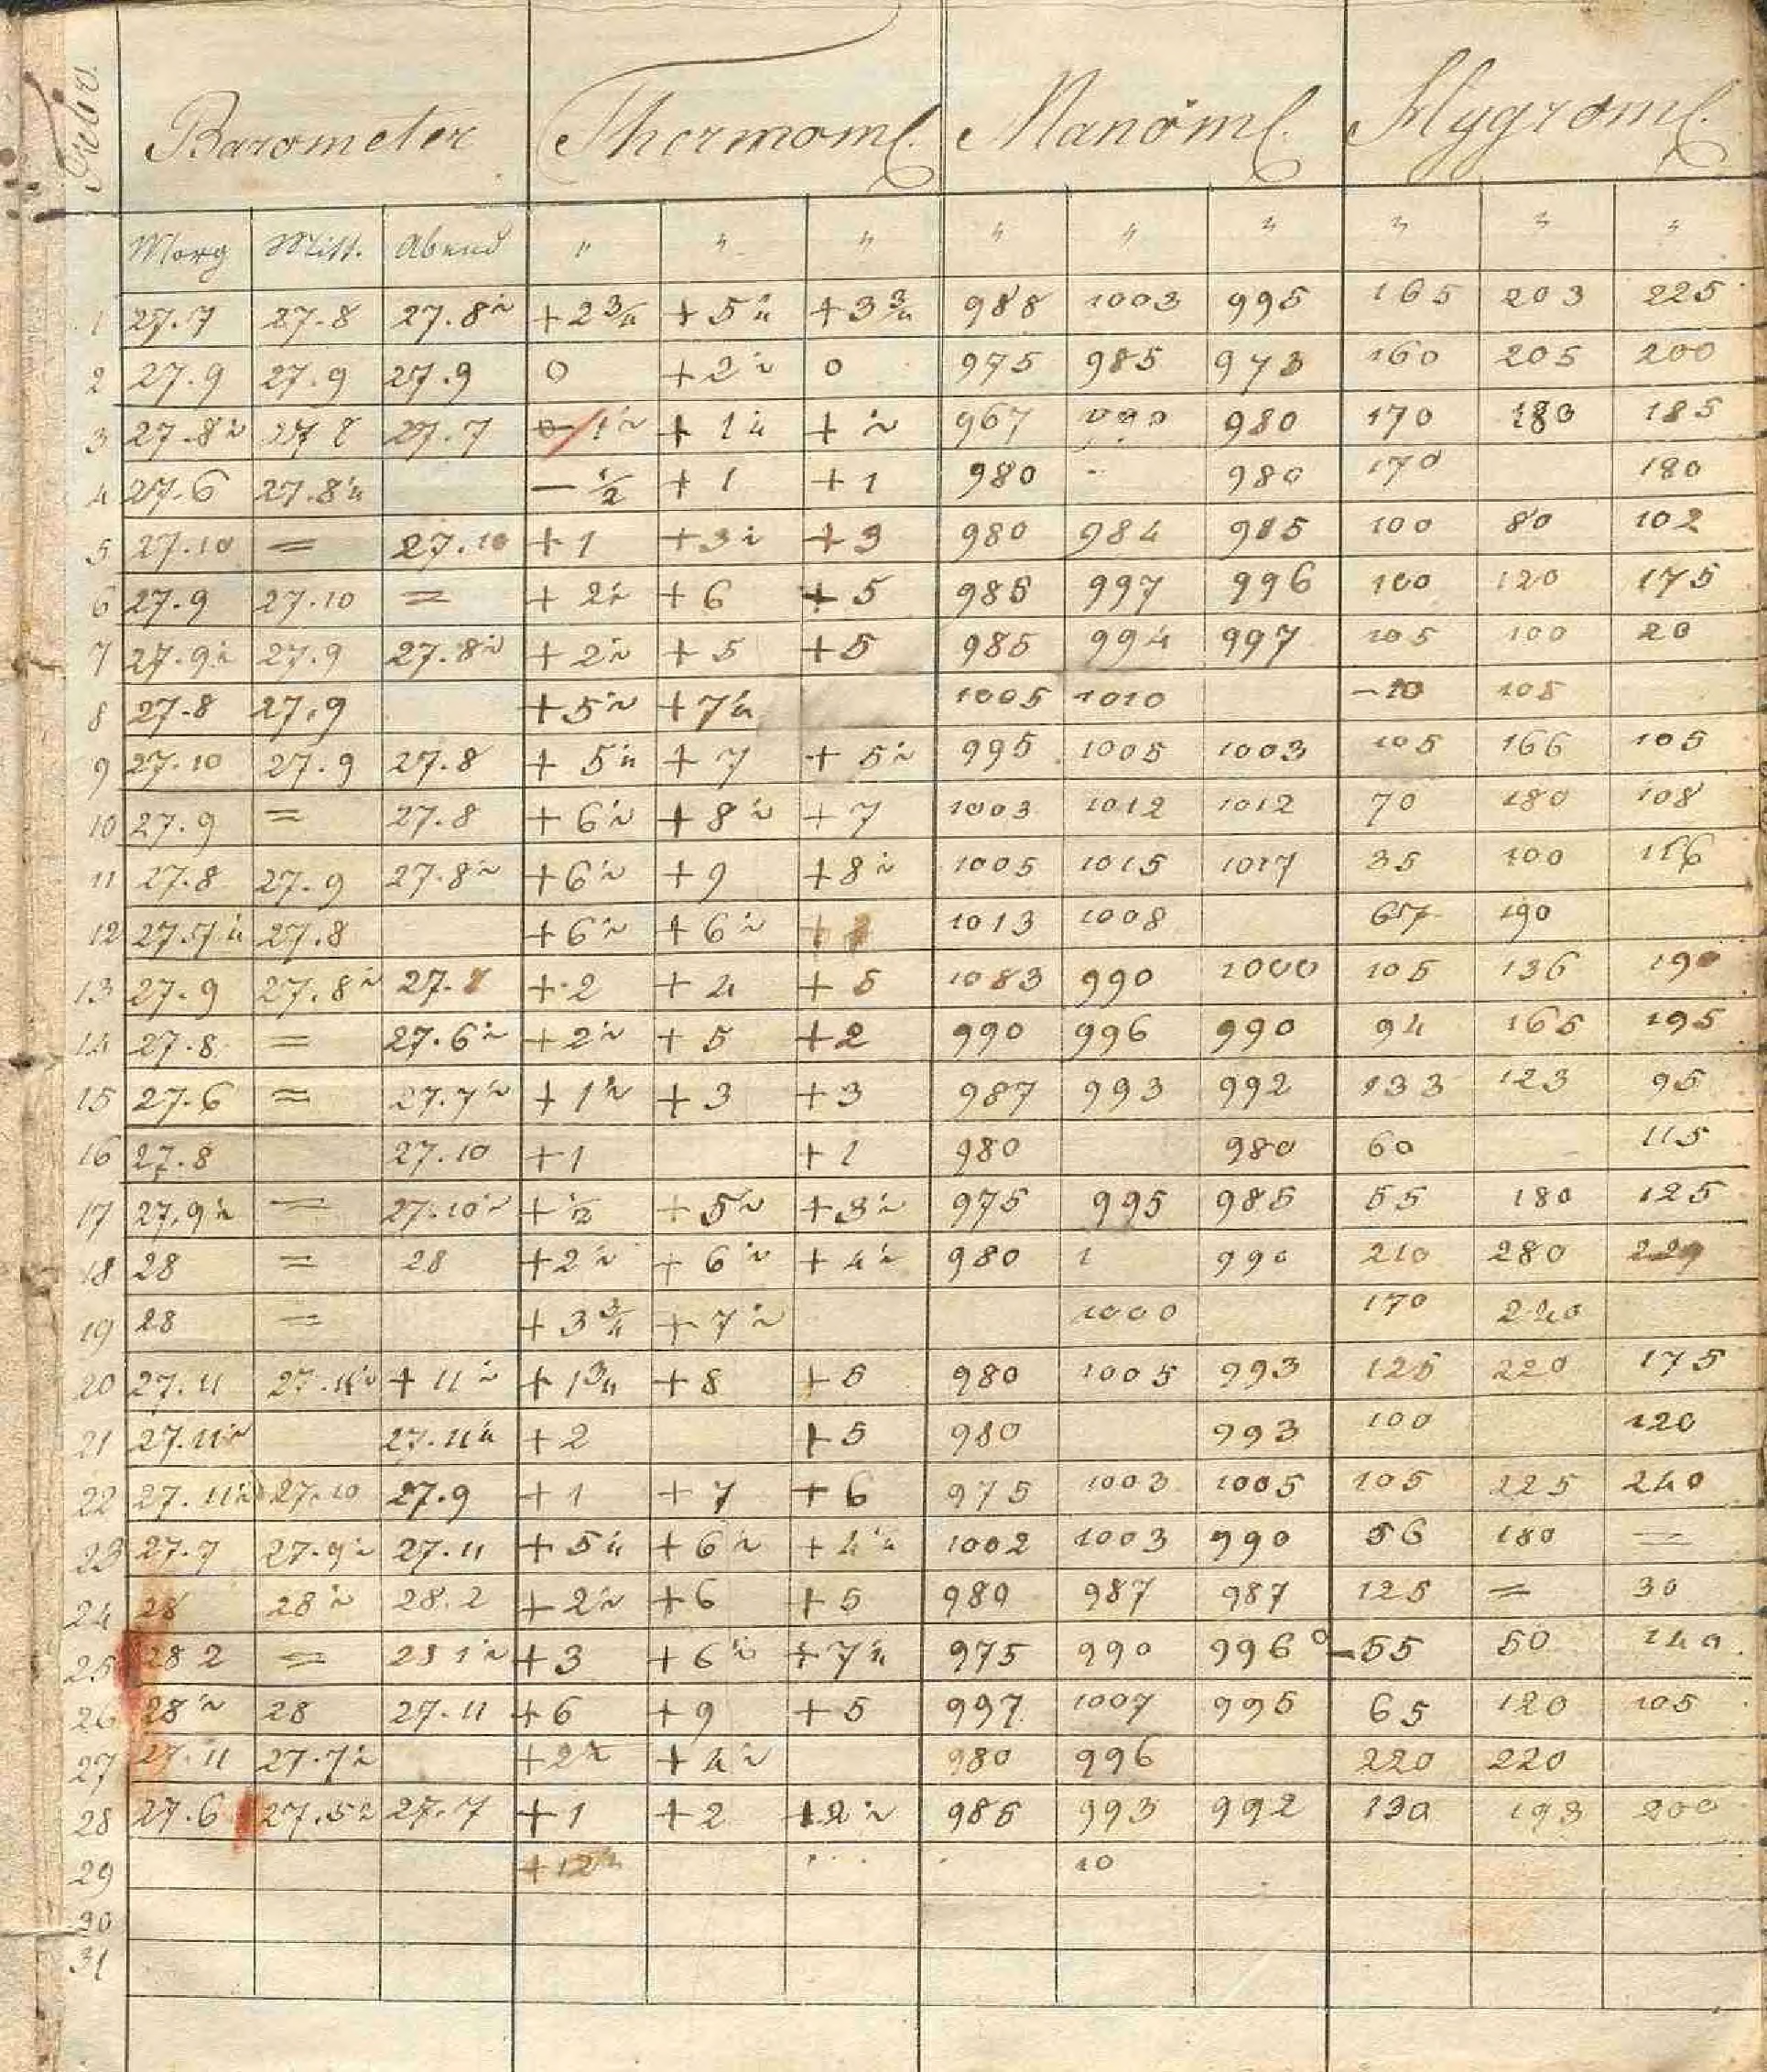 Febr.
Barometer Thermomt. Manömt. Hygromt.
Morg Mitt. Abend " " " " " " " " "
1 27.7 27.8 27.8½ +2¾ +5¼ +3¾ 988 1003 995 165 203 225
2 27.9 27.9 27.9 0 +2½ 0 975 985 973 160 205 200
3 27.8½ 27 8 27.7 1½ +1¼ +½ 967 980 170 180 185
4 27.6 27.8¼ -½ +1 +1 980 - 980 170 180
5 27.10 = 27.10 +1 +3½ +3 980 984 985 100 80 102
6 27.9 27.10 = +2½ +6 +5 985 997 996 100 120 175
7 27.9½ 27.9 27.8½ +2½ +5 +5 985 994 997 105 100 20
8 27.8 27.9 +5½ +7¼ 1005 1010 -10 108
9 27.10 27.9 27.8 +5¼ +7 +5½ 995 1005 1003 105 166 105
10 27.9 = 27.8 +6½ +8½ +7 1003 1012 1012 70 180 108
11 27.8 27.9 27.8½ +6½ +9 +8½ 1005 1015 1017 35 100 116
12 27.7¼ 27.8 +6½ +6½ 1013 1008 67 190
13 27.9 27.8½ 27. +2 +4 +5 1083 990 1000 105 136 190
14 27.8 = 27.6½ +2½ +5 +2 990 996 990 94 165 195
15 27.6 = 27.7½ +1½ +3 +3 987 993 992 133 123 95
16 27.8 27.10 +1 +1 980 980 60 115
17 27.9½ = 27.10½ +½ +5½ +3½ 975 995 985 55 180 125
18 28 = 28 +2½ +6½ +4½ 980 1 990 210 280
19 28 = +3¾ +7½ 1000 170 240
20 27.11 27.11½ +11½ +1¾ +8 +5 980 1005 993 125 220 175
21 27.11½ 27.11¼ +2 +5 980 993 100 120
22 27.11½ 27.10 27.9 +1 +7 +6 975 1003 1005 105 225 240
23 27.7 27.9½ 27.11 +5¼ +6½ +4¼ 1002 1003 990 56 180 =
24 28 28½ 28.2 +2½ +6 +5 980 987 987 125 = 30
25 28 2 = 28 1½ +3 +6½ +7¼ 975 990 996 0 -55 50 140
26 28½ 28 27.11 +6 +9 +5 997 1007 995 65 120 105
27 27.11 27.7½ +2½ +4½ 980 996 220 220
28 27.6 27.5½ 27.7 +1 +2 +2½ 985 993 992 130 193 200
29 +12½ 10
30
31